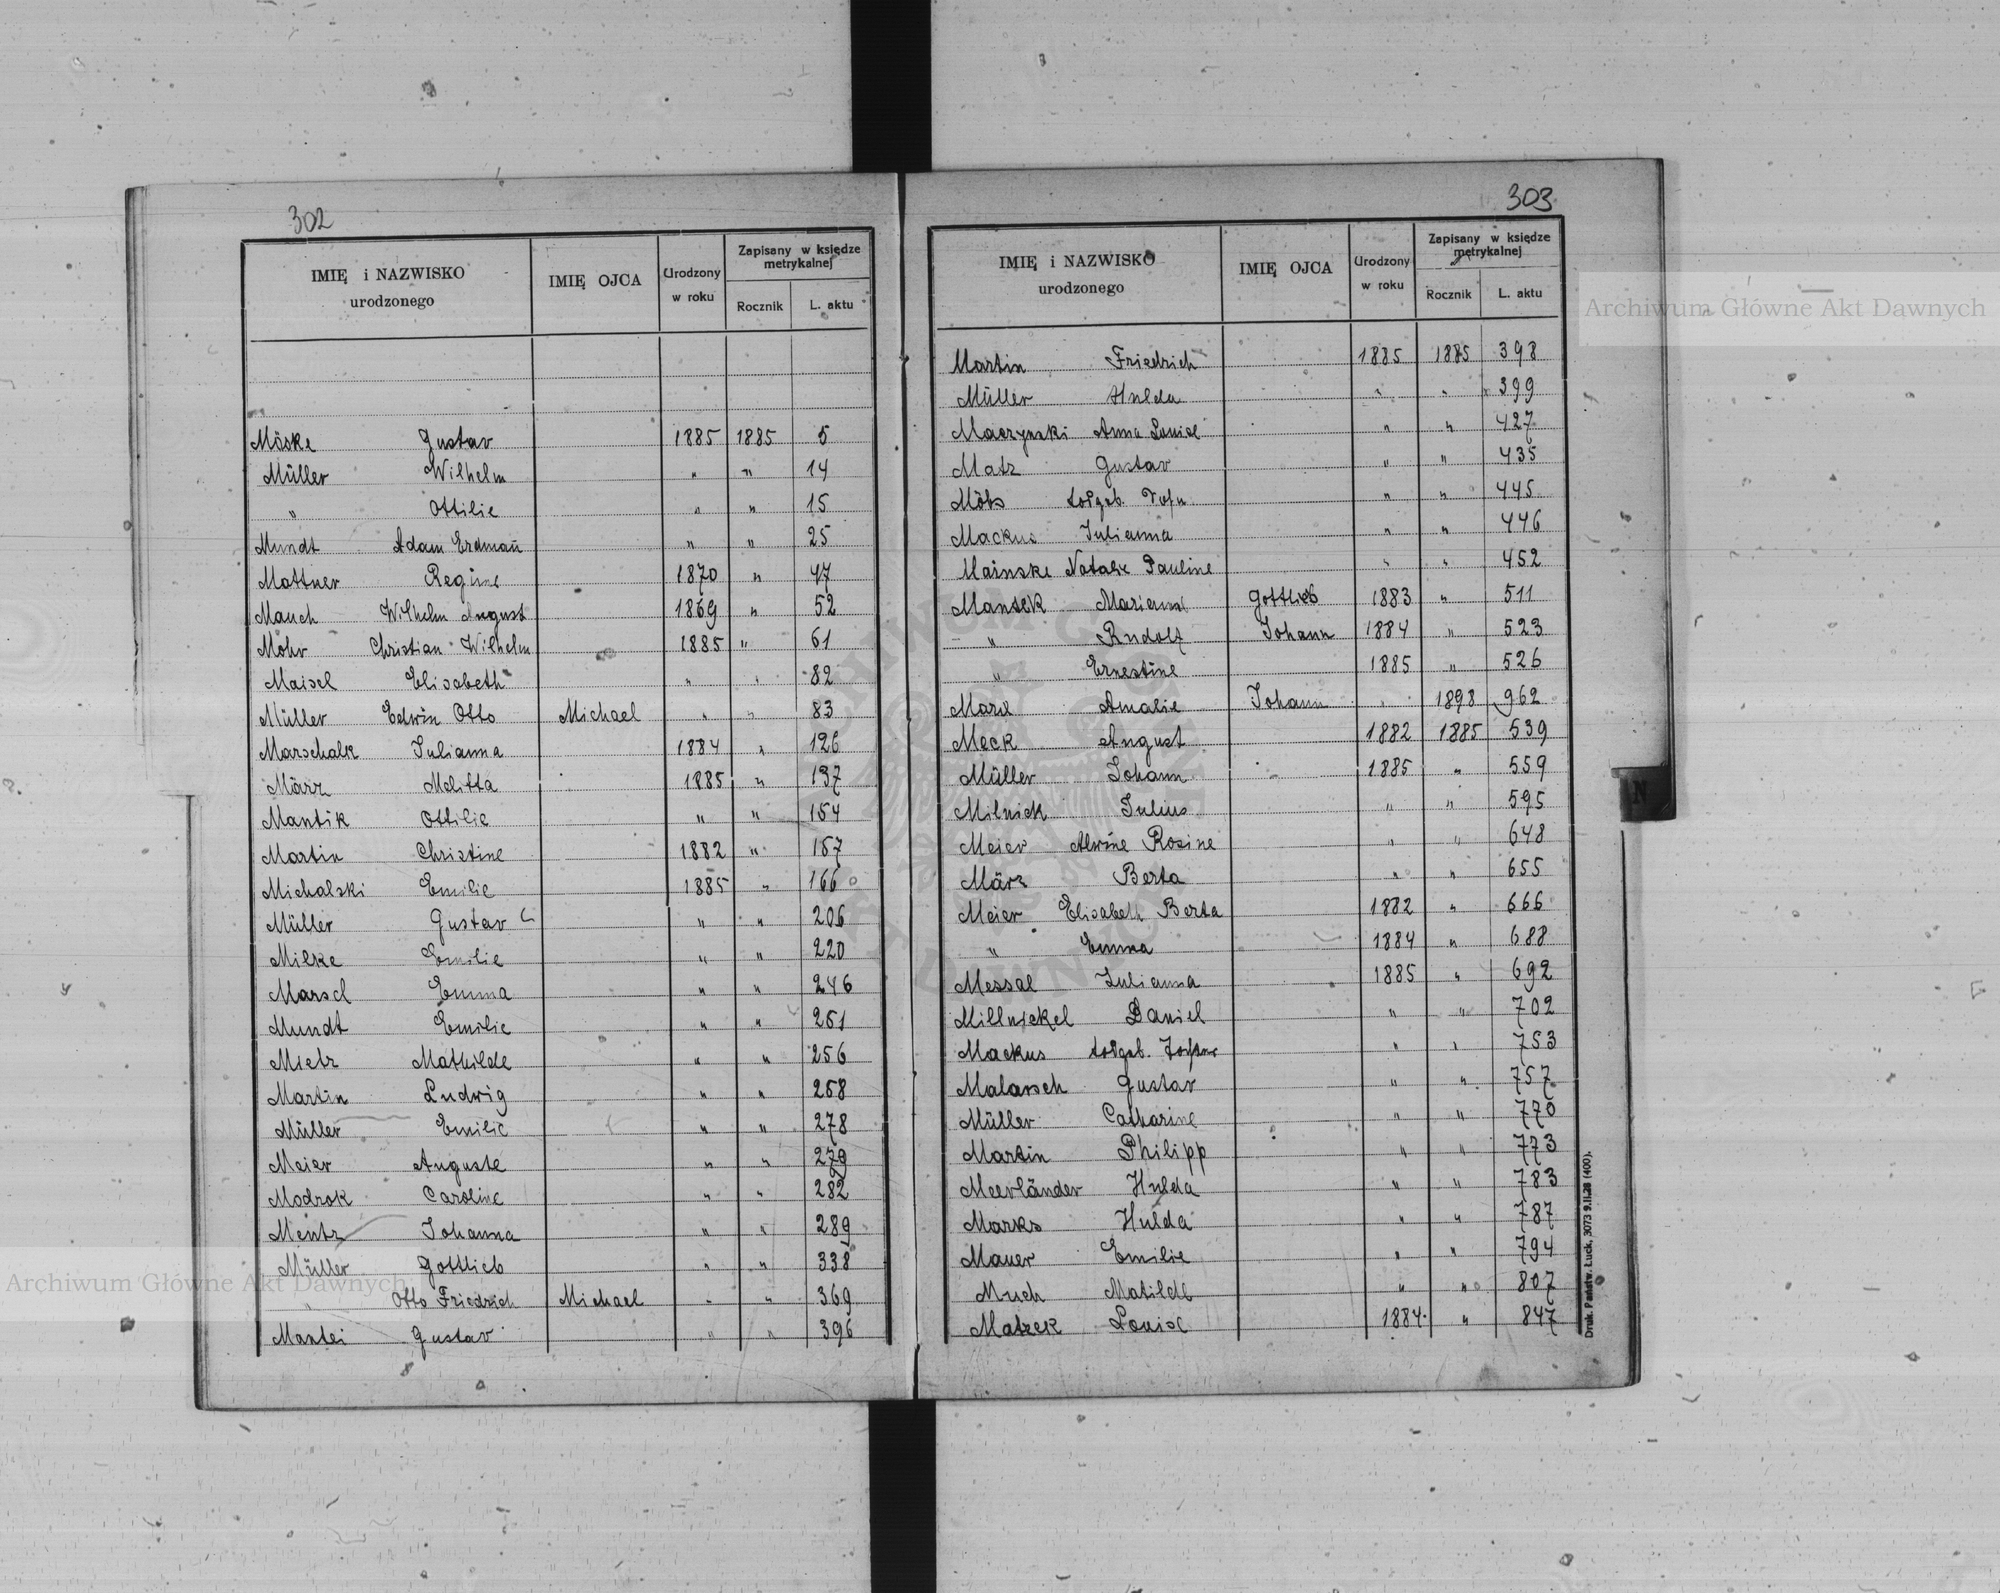 302
IMIĘ i NAZWISKO urodzonego IMIĘ OJCA Urodzony w roku Zapisany w księdze metrykalnej Rocznik L. aktu
Möske Gustav 1885 1885 5
Müller Wilhelm " " 14
" Ottilie " " 15
Mundt Adam Erdmañ " " 25
Mattner Regine 1870 " 47
Mauch Wilhelm August 1869 " 52
Möhr Christian Wilhelm 1885 " 61
Maisel Elisabeth " " 82
Müller Edwin Otto Michael " " 83
Marschalk Julianna 1884 " 126
März Melitta 1885 " 137
Mantik Ottilie " " 154
Martin Christine 1882 " 157
Michalski Emilie 1885 " 166
Müller Gustav " " 206
Milke Emilie " " 220
Marsel Emma " " 246
Mundt Emilie " " 251
Mietz Mathilde " " 256
Martin Ludwig " " 258
Müller Emilie " " 278
Meier Auguste " " 279
Modrok Caroline " " 282
Mentz Johanna " " 289
Müller Gottlieb " " 338
" Otto Friedrich Michael " " 369
Mantei Gustav " " 396
303
IMIĘ i NAZWISKO urodzonego IMIĘ OJCA Urodzony w roku Zapisany w księdze metrykalnej Rocznik L. aktu
Martin Friedrich 1885 1885 398
Müller Hulda " " 399
Maczynski Anna Louise " " 427
Matz Gustav " " 435
Möts " " 445
Julianna " " 446
Mainske Natalie Pauline " " 452
Mantek Marianne Gottlieb 1883 " 511
" Rudolf Johann 1884 " 523
" Ernestine 1885 " 526
Amalie Johann " 1898 962
Meck August 1882 1885 539
Müller Johann 1885 " 559
Milnick Julius " " 595
Meier Alwine Rosine " " 648
März Berta " " 655
Meier Elisabeth Berta 1882 " 666
" Emma 1884 " 688
Messal Julianna 1885 " 692
Millnickel Daniel " " 702
Mackus " " 753
Malarsch Gustav " " 757
Müller Catharine " " 770
Martin Philipp " " 773
Meerländer Hulda " " 783
Marks Hulda " " 787
Mauer Emilie " " 794
Much Matilde " " 807
Matzek Louise 1884 " 847
Druk. Państw. Łuck, 3073 9.II.28 (400).
Archiwum Główne Akt Dawnych
Archiwum Główne Akt Dawnych